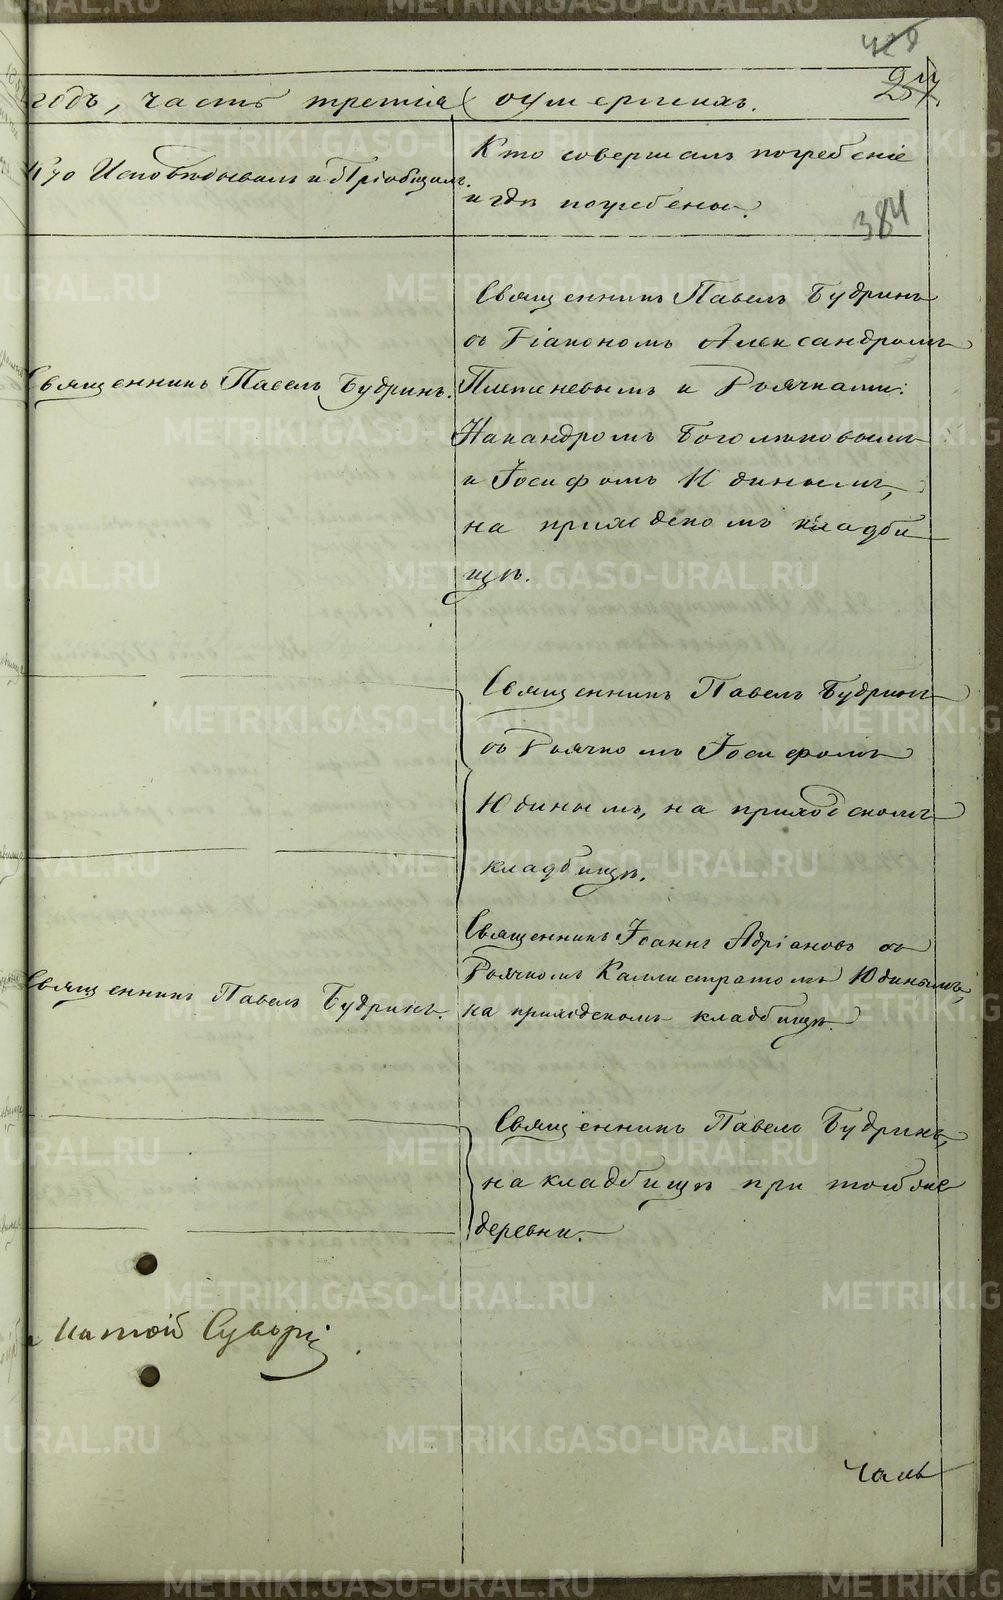 428
257
годъ, часть третія о умершихъ.
Кто Исповѣдывалъ и Пріобщалъ.
Кто совершалъ погребеніе
и гдѣ погребены.
384
Священникъ Павелъ Будринъ
съ Діакономъ Александромъ
Священникъ Павелъ Будринъ.
Плетеневымъ и Дьячками:
Никандромъ Боголюбовымъ
и Іосифомъ Юдинымъ,
на приходскомъ кладби
щѣ.
Священникъ Павелъ Будринъ
съ Дьячкомъ Іосифомъ
Юдинымъ, на приходскомъ
кладбищѣ.
Священникъ Іоаннъ Адріановъ съ
Дьячкомъ Каллистратомъ Юдинымъ,
Священникъ Павелъ Будринъ.
на приходскомъ кладбищѣ.
Священникъ Павелъ Будринъ,
на кладбищѣ при той же
деревни.
Суворъ
Часть
METRIKI.GASO-URAL.RU